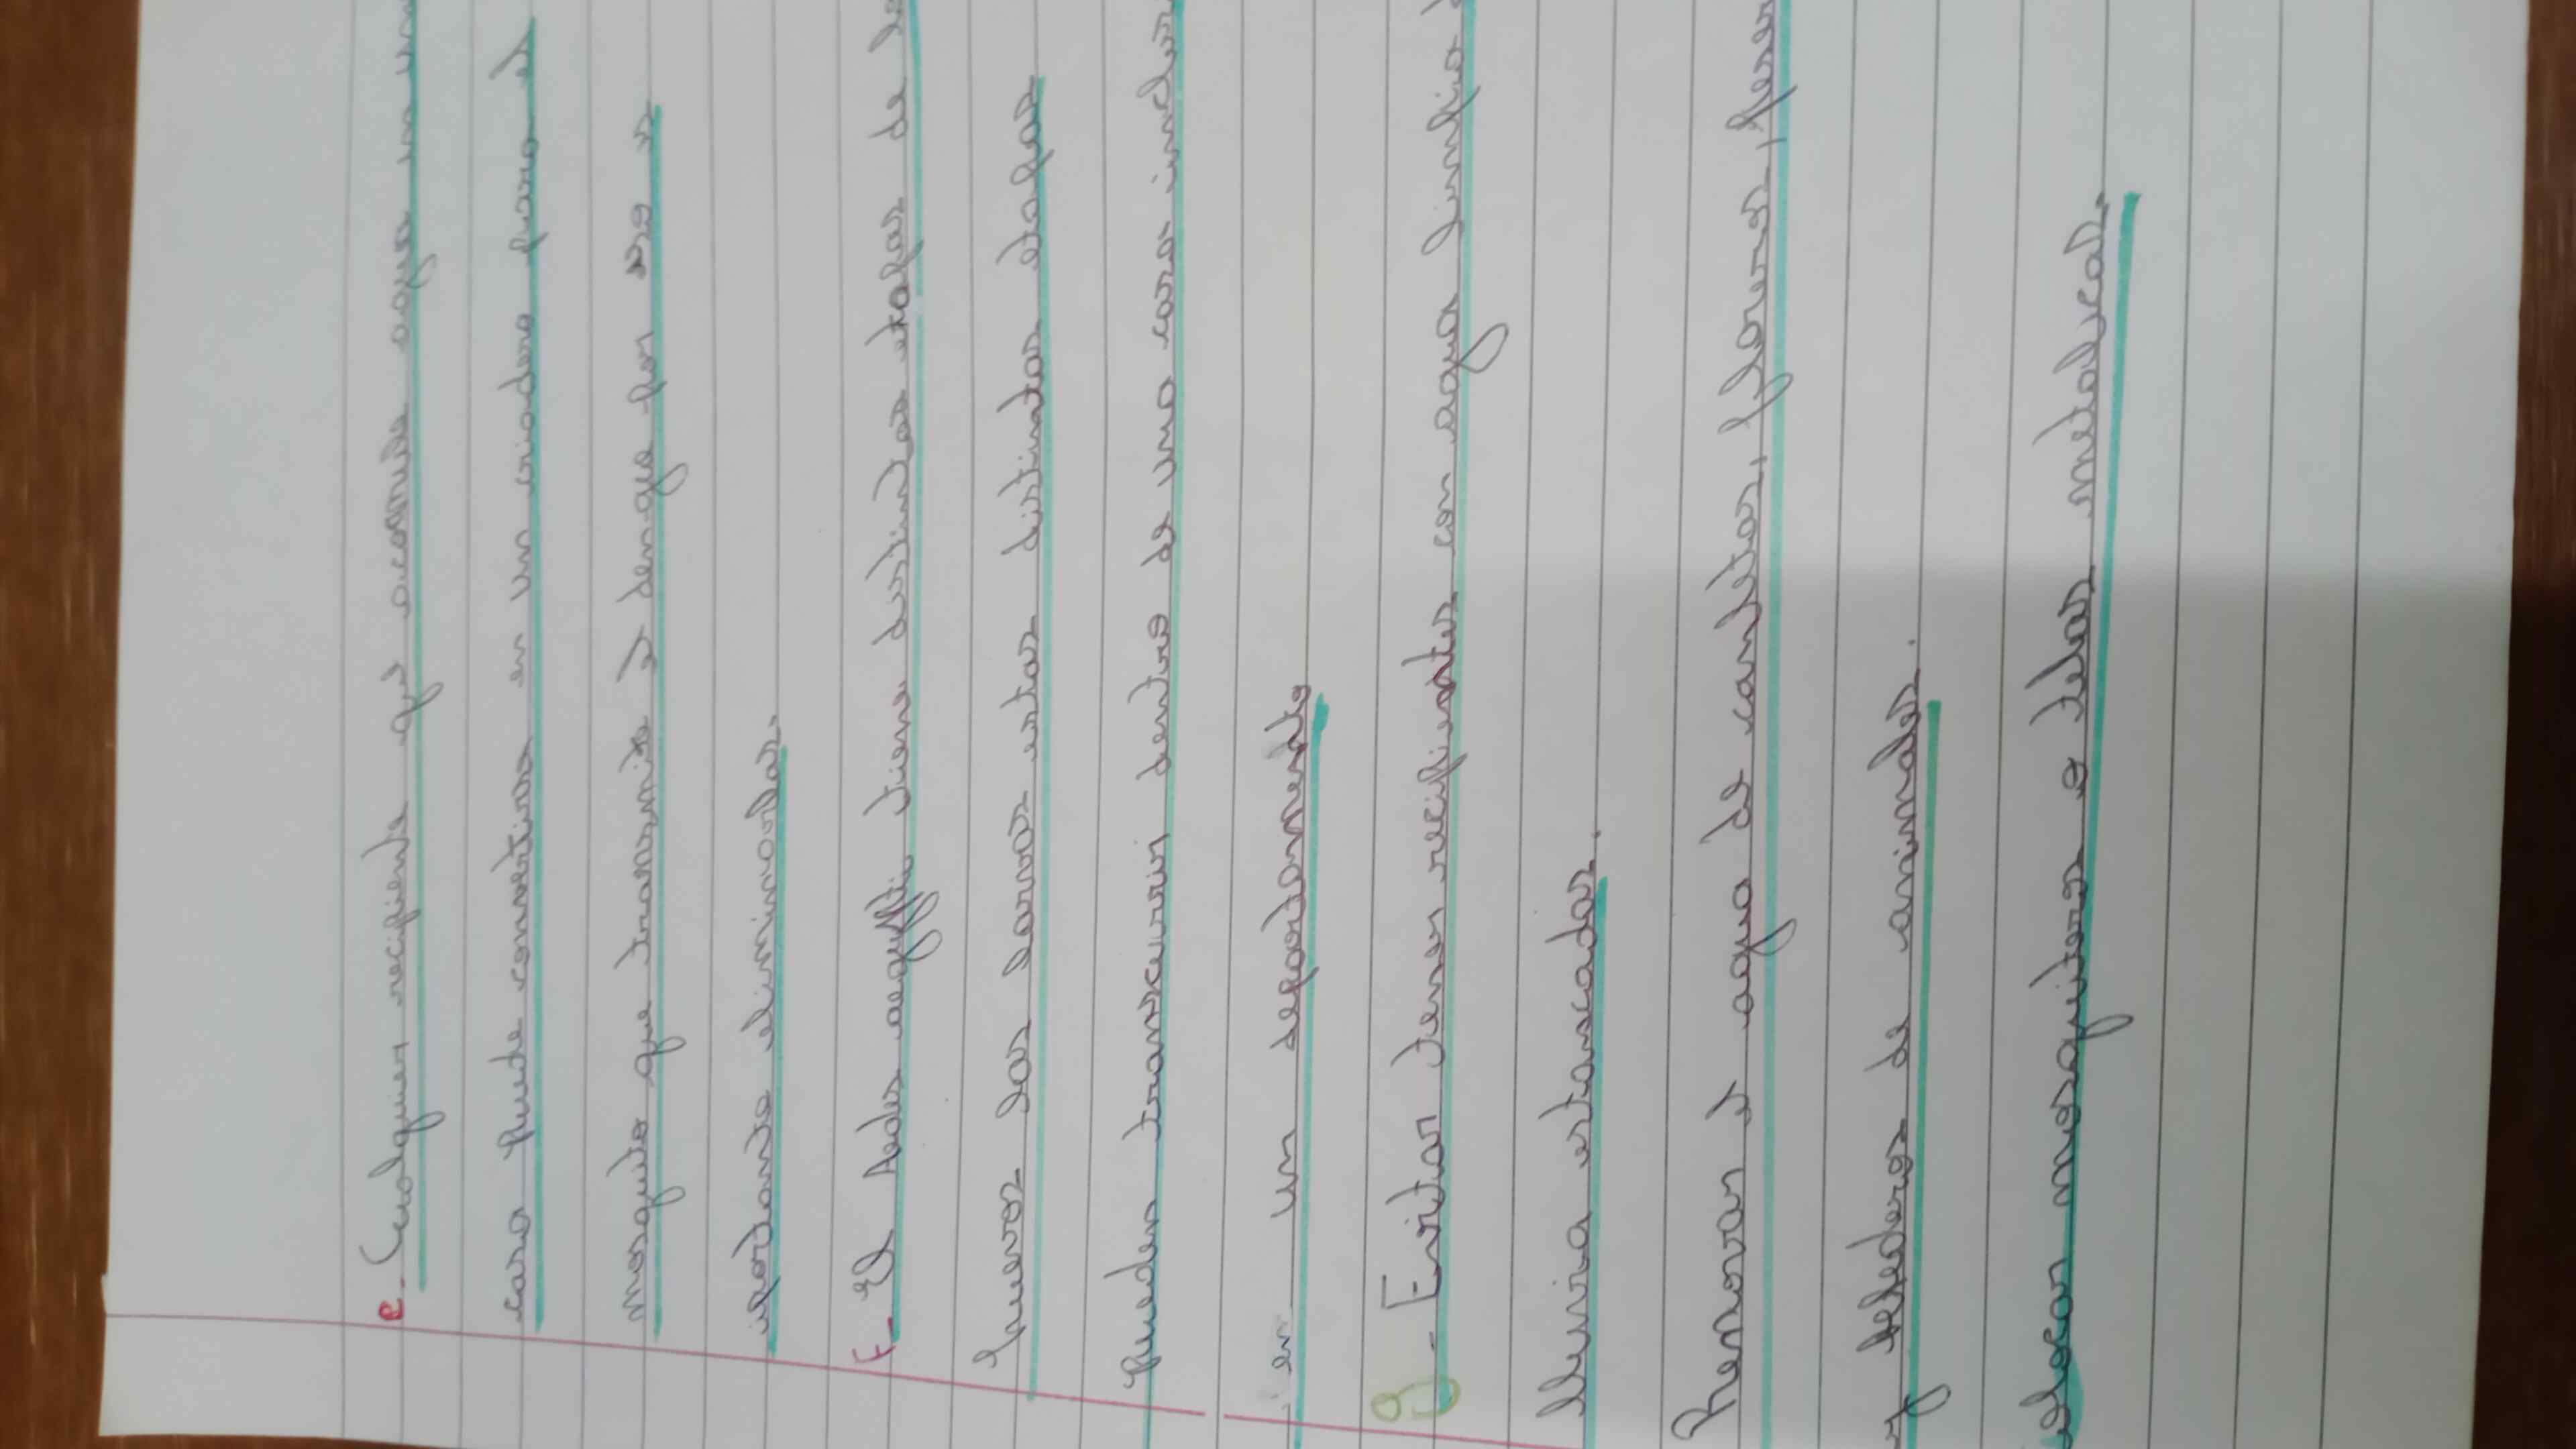 e- Cualquier recipiente qe acomule agua en un
casa puede convertirse en un criadero para el
mosquito que transmite el dengue por eso es
inportante eliminarlas.
F- El Aedes aegypti tiene distintas etapas de
huevos las larvas estas distintas etapas
pueden transcurrir dentro de una casa
en un departamento
g- Evitar tener recipientes con agua limpia
lluvia estancadas.
Renovar el agua de canletas, floreros, peser
y bebederos de animales.
olocar mosquiteros o telas metalicas.